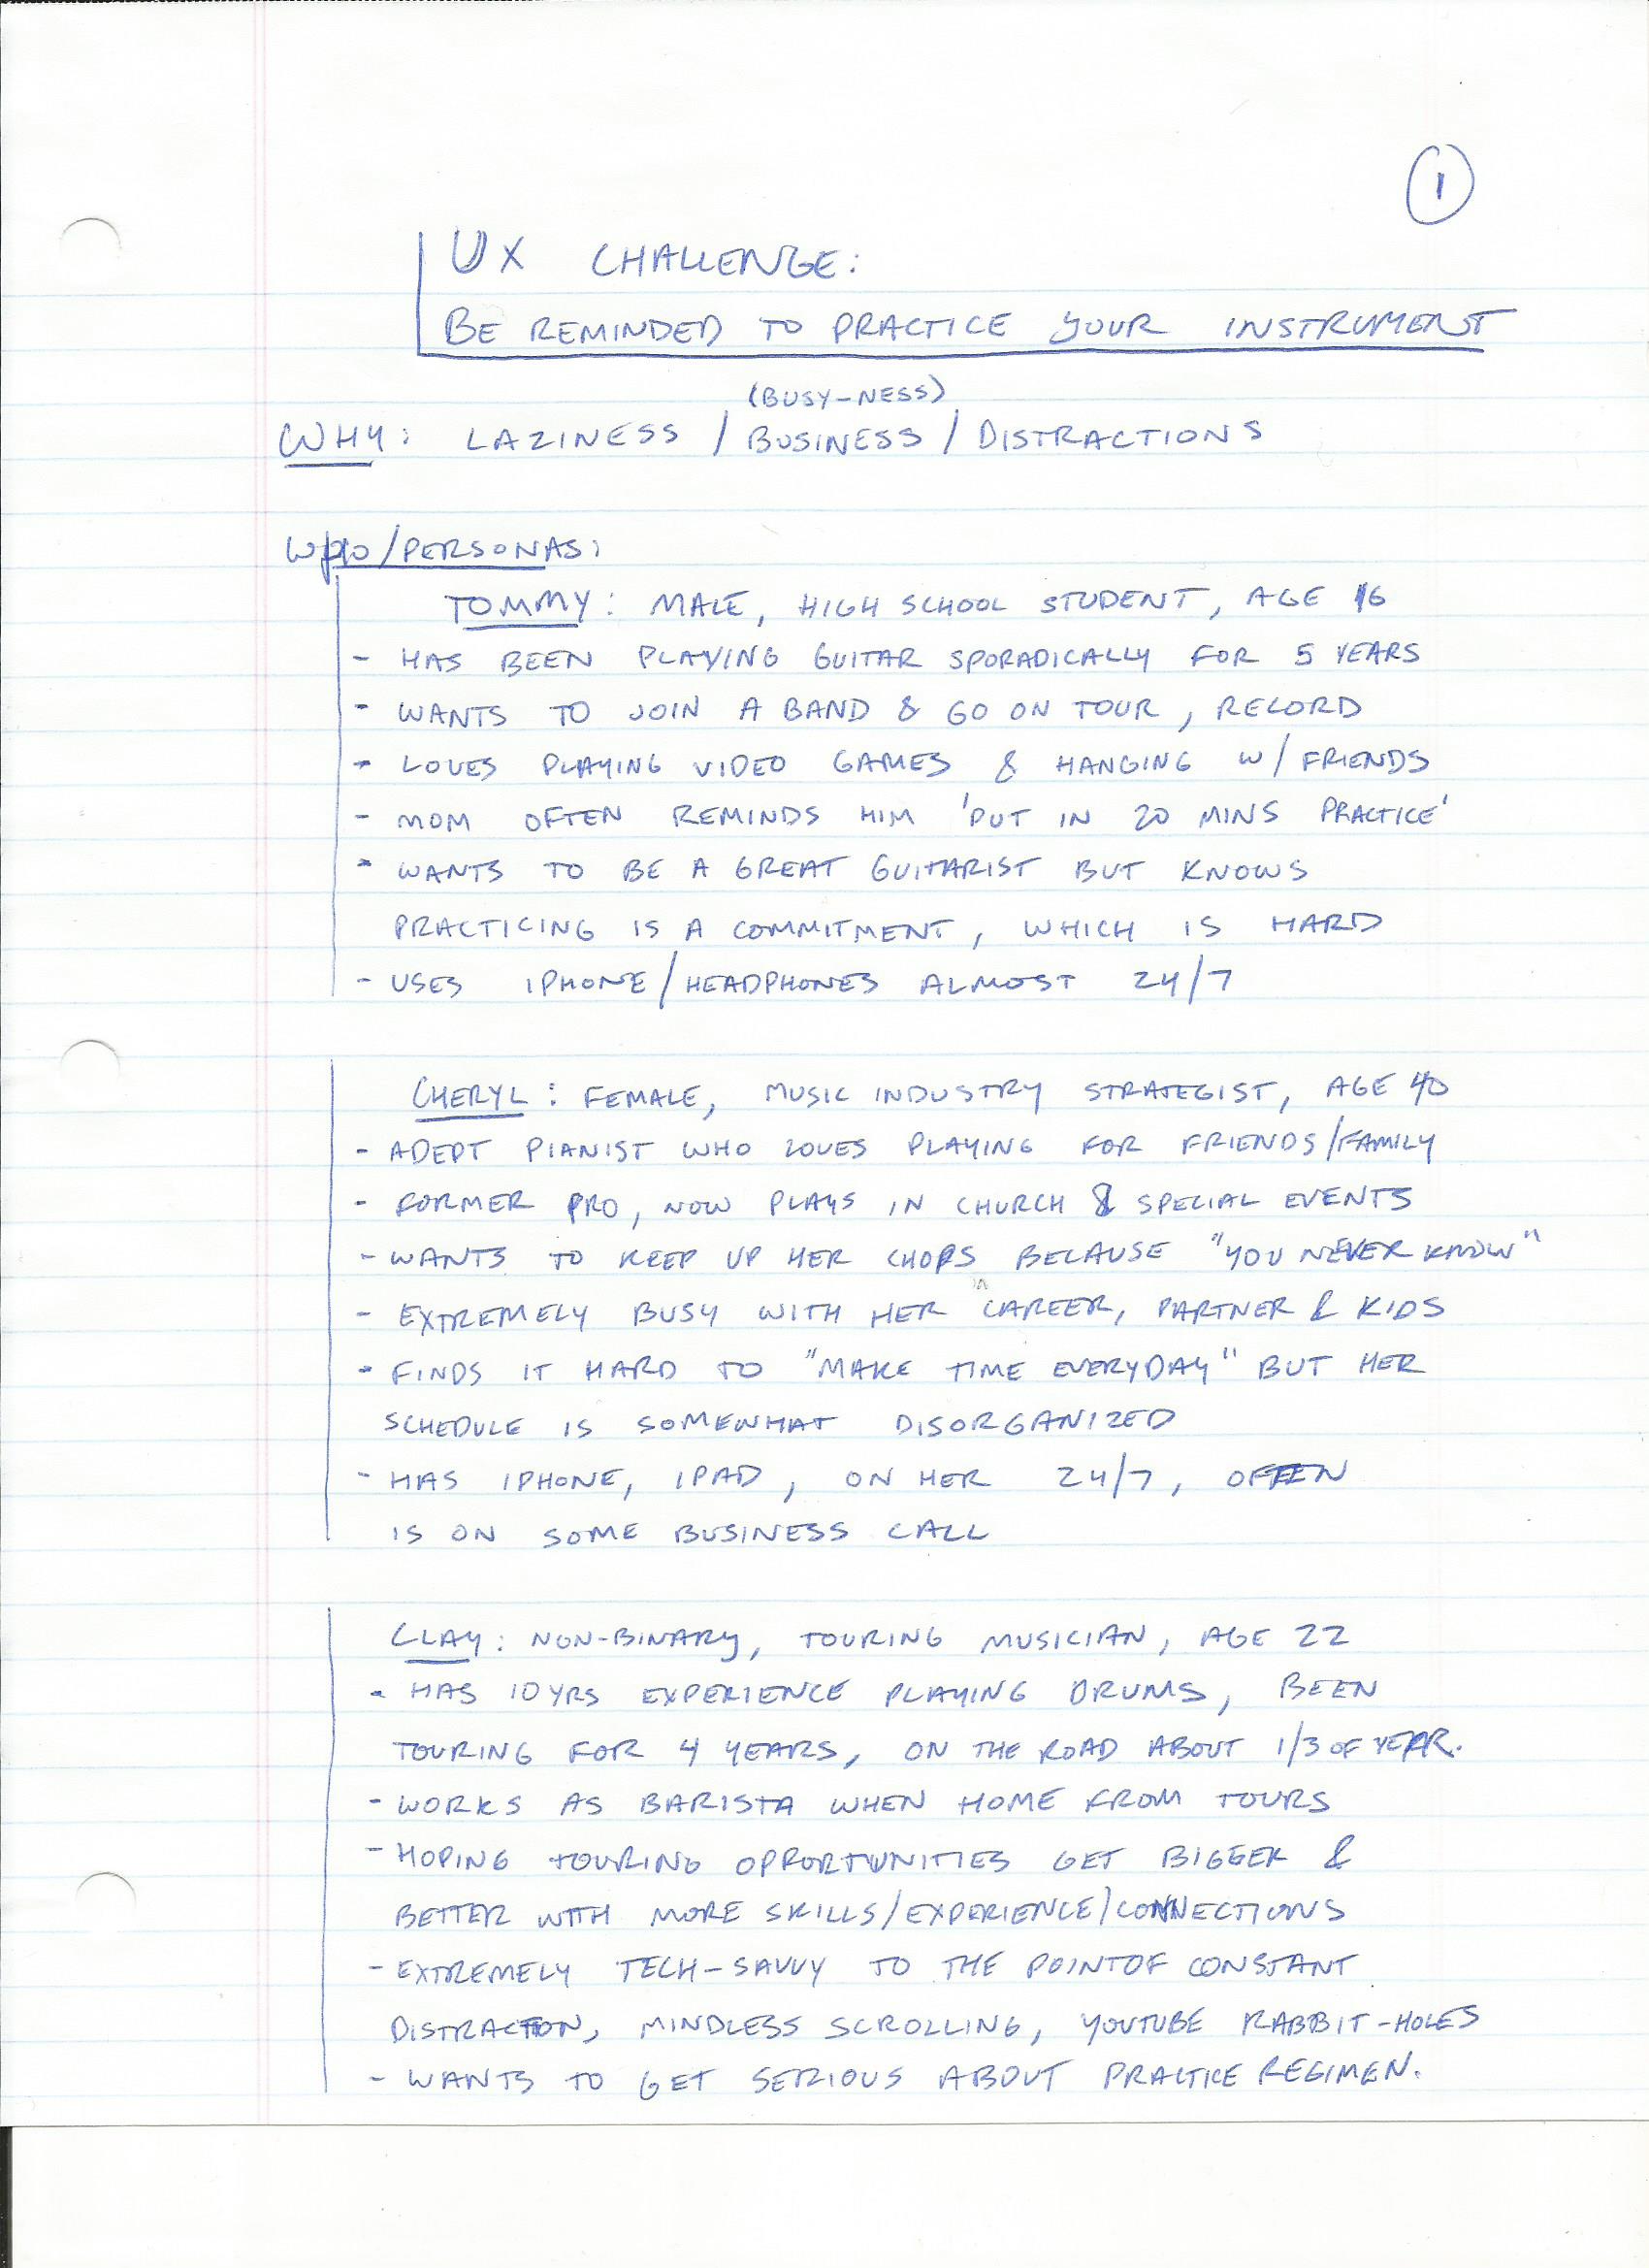 1
UX CHALLENGE:
BE REMINDED TO PRACTICE YOUR INSTRUMENT
(BUSY-NESS)
WHY: LAZINESS / BUSINESS / DISTRACTIONS
WHO/PERSONAS:
TOMMY: MALE, HIGH SCHOOL STUDENT, AGE 16
- HAS BEEN PLAYING GUITAR SPORADICALLY FOR 5 YEARS
- WANTS TO JOIN A BAND & GO ON TOUR, RECORD
- LOVES PLAYING VIDEO GAMES & HANGING W/ FRIENDS
- MOM OFTEN REMINDS HIM 'PUT IN 20 MINS PRACTICE'
- WANTS TO BE A GREAT GUITARIST BUT KNOWS
PRACTICING IS A COMMITMENT, WHICH IS HARD
- USES IPHONE/HEADPHONES ALMOST 24/7
CHERYL: FEMALE, MUSIC INDUSTRY STRATEGIST, AGE 40
- ADEPT PIANIST WHO LOVES PLAYING FOR FRIENDS/FAMILY
- FORMER PRO, NOW PLAYS IN CHURCH & SPECIAL EVENTS
- WANTS TO KEEP UP HER CHOPS BECAUSE "YOU NEVER KNOW"
- EXTREMELY BUSY WITH HER CAREER, PARTNER & KIDS
- FINDS IT HARD TO "MAKE TIME EVERYDAY" BUT HER
SCHEDULE IS SOMEWHAT DISORGANIZED
- HAS IPHONE, IPAD, ON HER 24/7, OFTEN
IS ON SOME BUSINESS CALL
CLAY: NON-BINARY, TOURING MUSICIAN, AGE 22
- HAS 10 YRS EXPERIENCE PLAYING DRUMS, BEEN
TOURING FOR 4 YEARS, ON THE ROAD ABOUT 1/3 OF YEAR.
- WORKS AS BARISTA WHEN HOME FROM TOURS
- HOPING TOURING OPPORTUNITIES GET BIGGER &
BETTER WITH MORE SKILLS/EXPERIENCE/CONNECTIONS
- EXTREMELY TECH-SAVVY TO THE POINT OF CONSTANT
DISTRACTION, MINDLESS SCROLLING, YOUTUBE RABBIT-HOLES
- WANTS TO GET SERIOUS ABOUT PRACTICE REGIMEN.